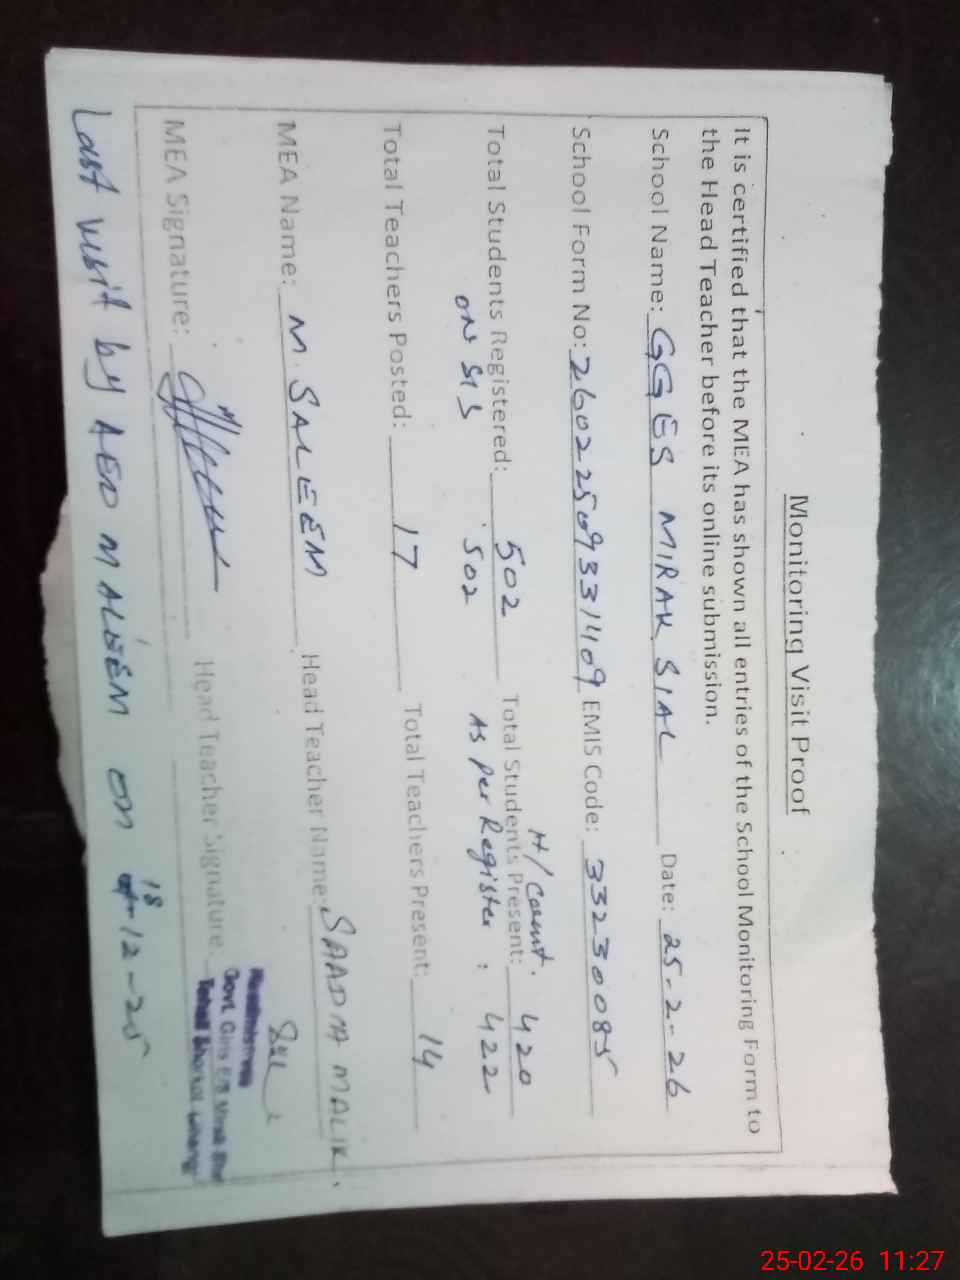 Monitoring Visit Proof
It is certified that the MEA has shown all entries of the School Monitoring Form to
the Head Teacher before its online submission.
School Name: GGES MIRAK SIAL Date: 25-2-26
School Form No: 26022509331409 EMIS Code: 33230085
H/Count.
Total Students Registered: 502 Total Students Present: 420
ON SIS 502 As per Register : 422
Total Teachers Posted: 17 Total Teachers Present: 14
MEA Name: M. SALEEM Head Teacher Name: SAADIA MALIK.
MEA Signature: Head Teacher Signature:
Headmistress
Govt. Girls E/S Mirak Sial
Tehsil Shorkot
Last visit by AEO M ALEEM on 18-12-25
25-02-26 11:27